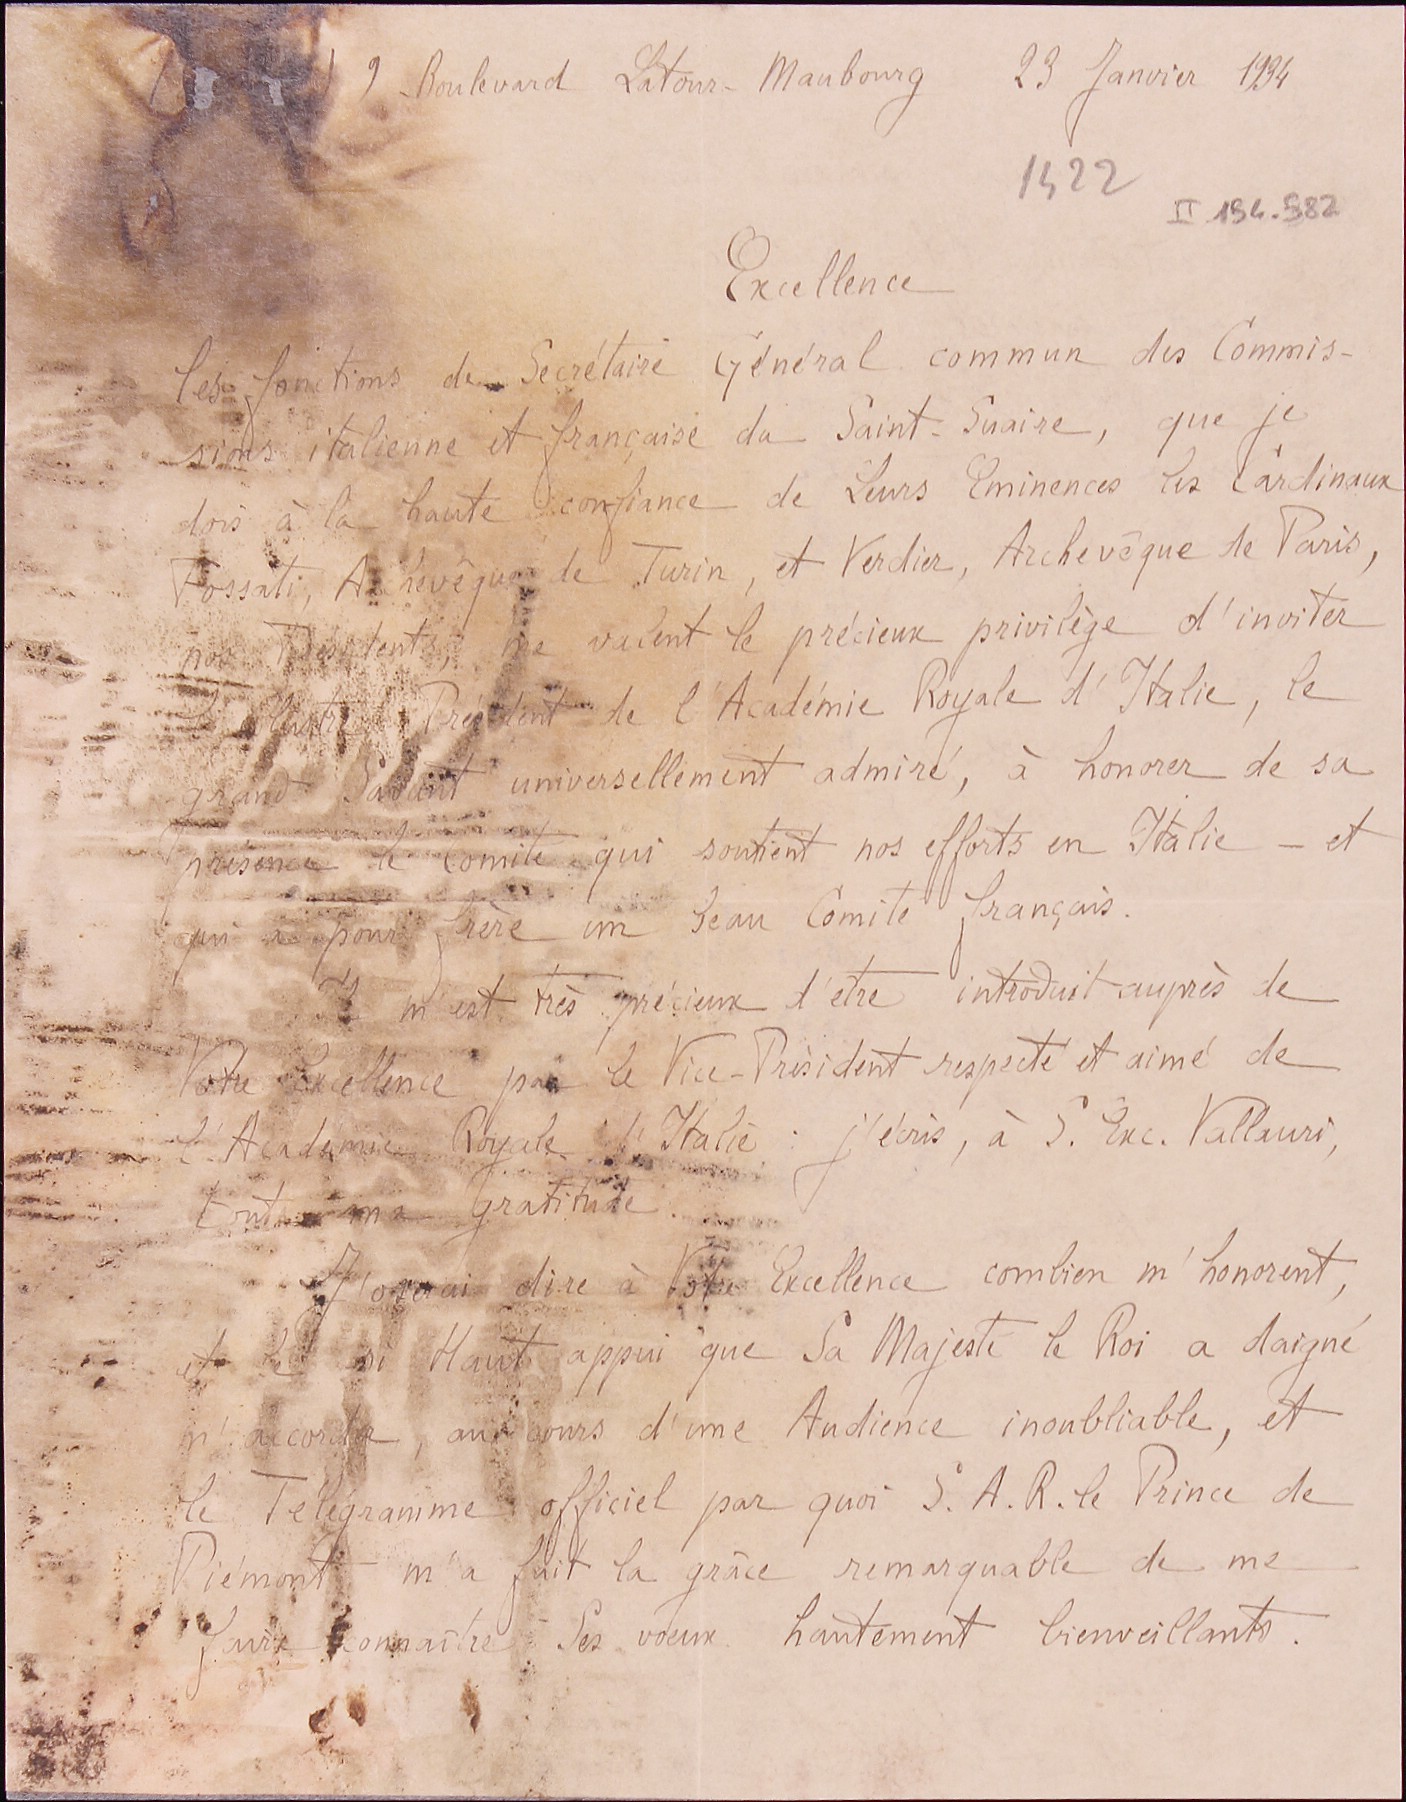 9 Boulevard Latour-Maubourg 23 Janvier 1934
1422
II 194.982
Excellence
les fonctions de Secrétaire Général commun des Commis-
sions italienne et française du Saint-Suaire, que je
dois à la haute confiance de Leurs Eminences les Cardinaux
Fossati, Archevêque de Turin, et Verdier, Archevêque de Paris,
nos Présidents, me valent le précieux privilège d'inviter
l'illustre Président de l'Académie Royale d'Italie, le
grand Savant universellement admiré, à honorer de sa
présence le Comité qui soutient nos efforts en Italie - et
qui a pour frère un beau Comité français.
Il m'est très précieux d'être introduit auprès de
Votre Excellence par le Vice-Président respecté et aimé de
l'Académie Royale d'Italie : j'écris, à S. Exc. Vallauri,
toute ma gratitude.
J'oserai dire à Votre Excellence combien m'honorent,
et le si Haut appui que Sa Majesté le Roi a daigné
m'accorder, au cours d'une Audience inoubliable, et
le Télégramme officiel par quoi S.A.R. le Prince de
Piémont m'a fait la grâce remarquable de me
faire connaître Ses voeux hautement bienveillants.